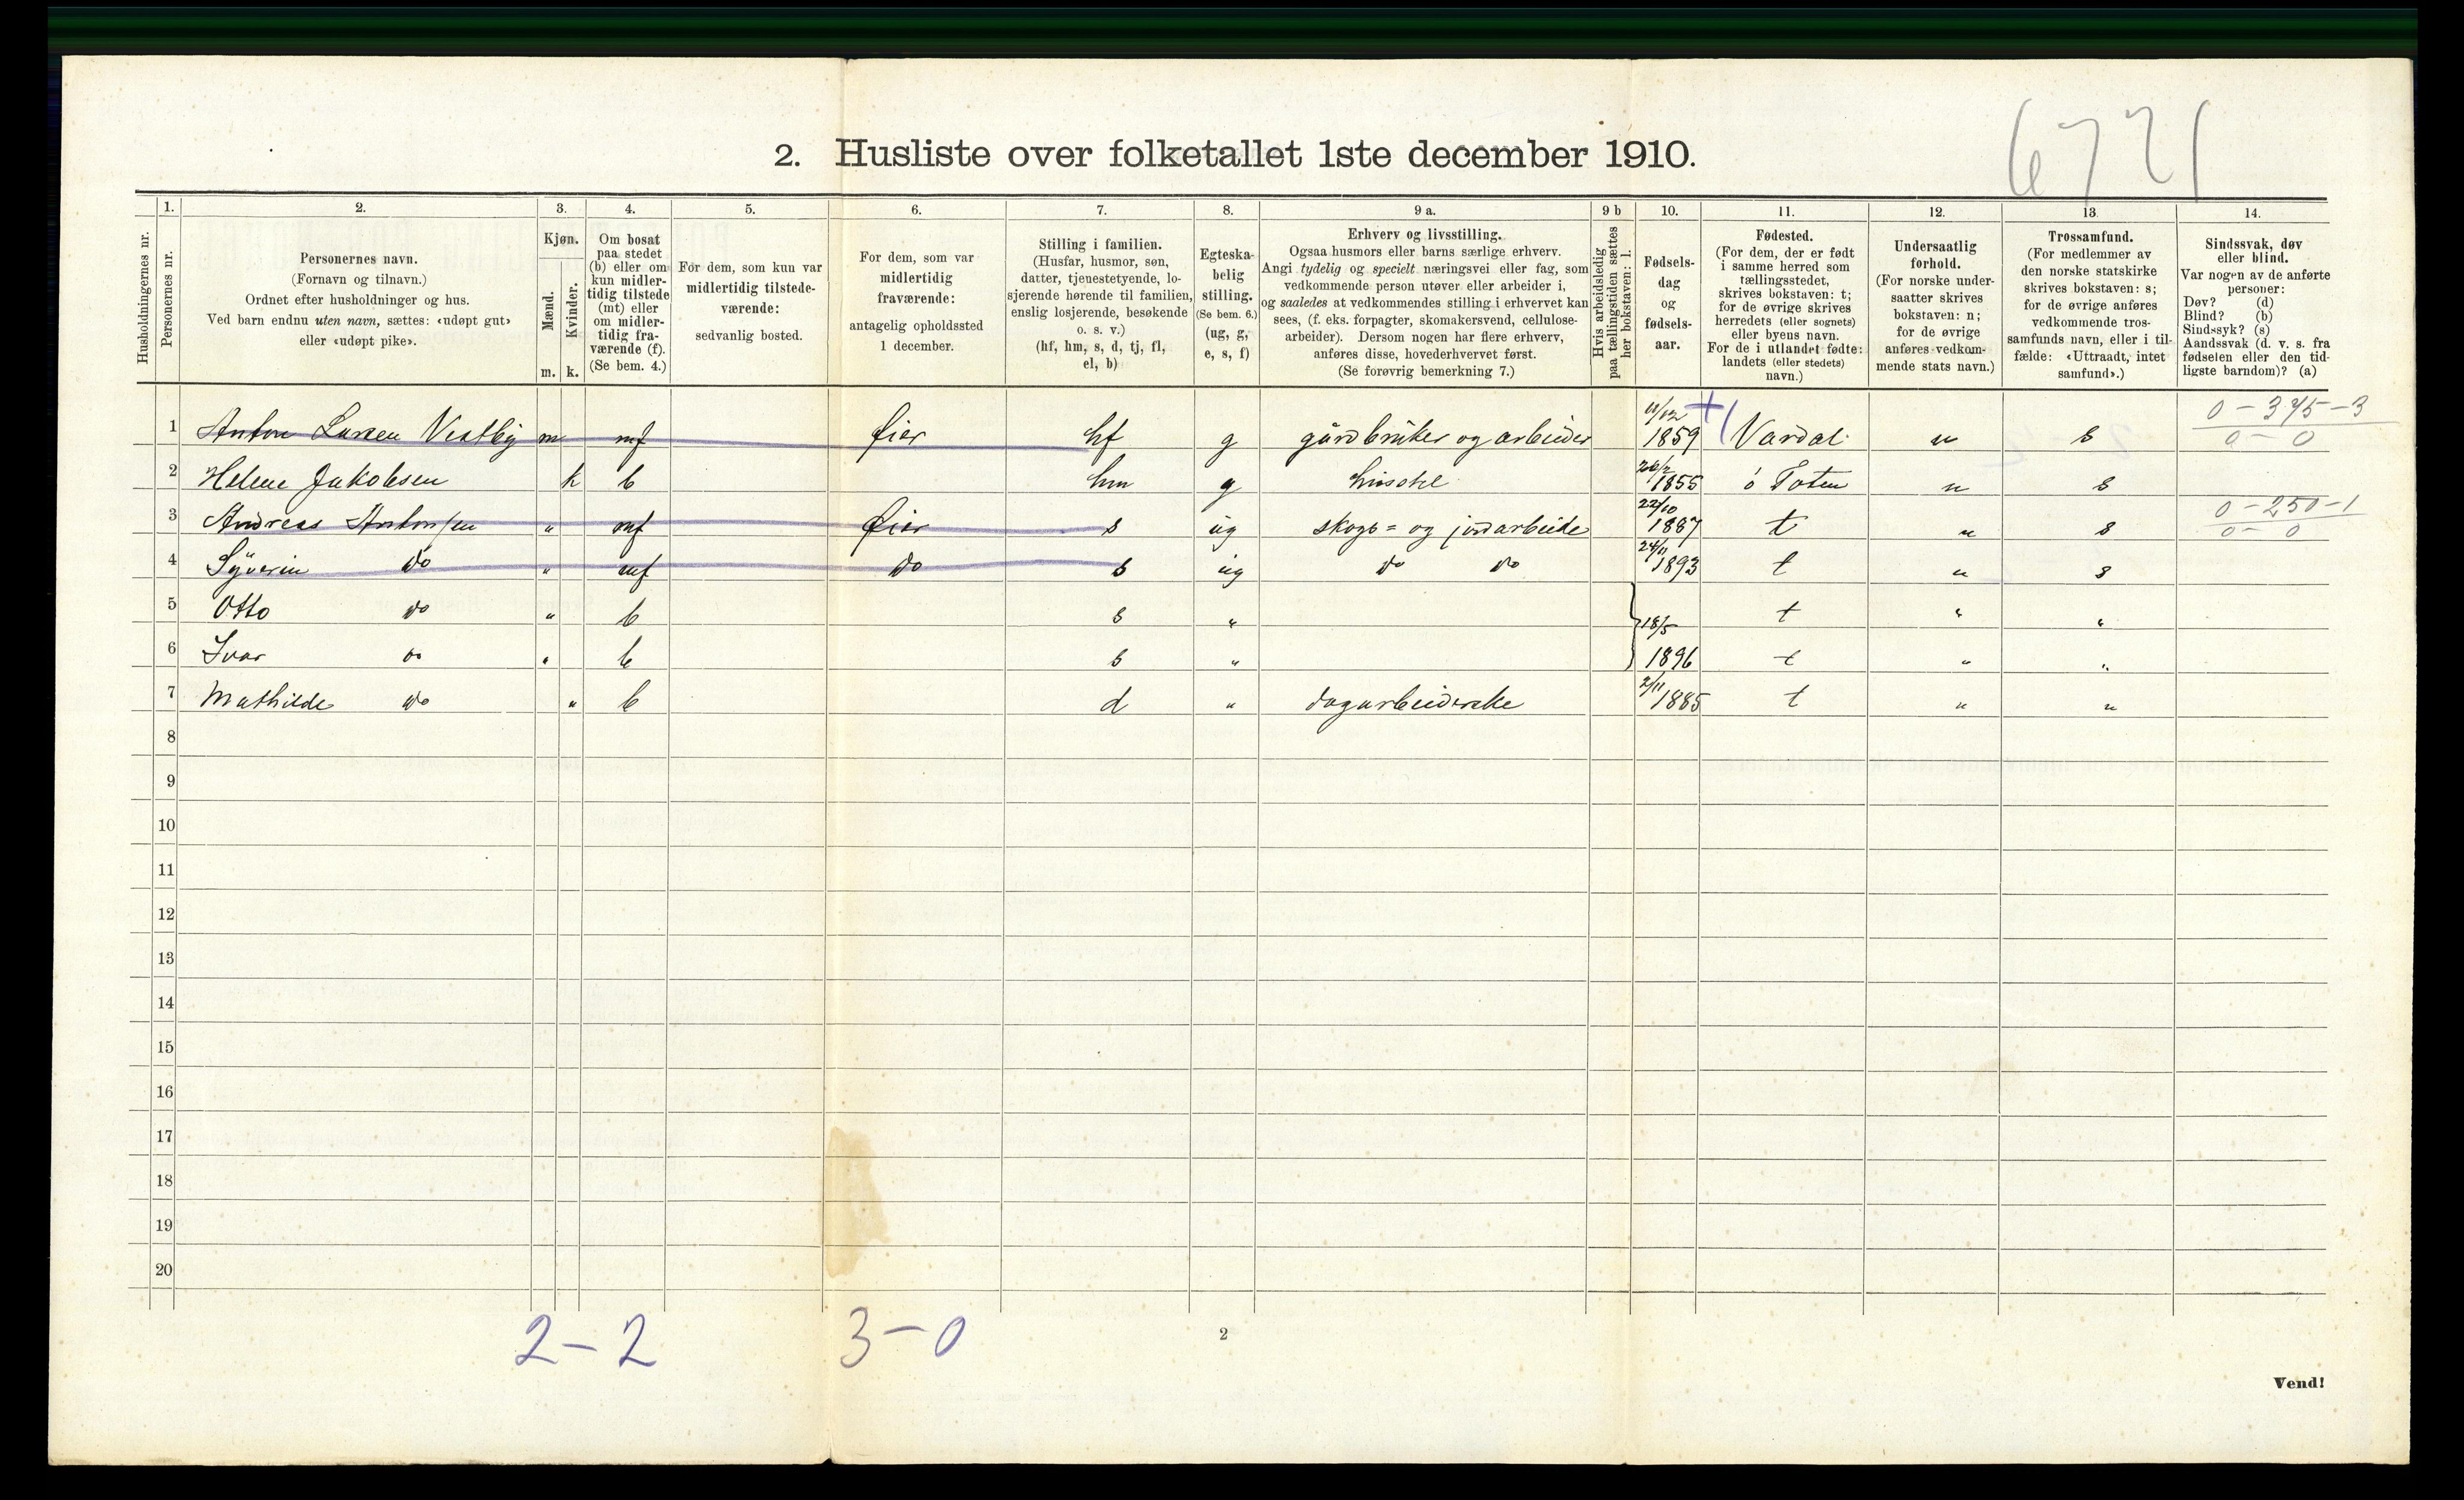 6721
2. Husliste over folketallet 1ste december 1910.
Husholdningernes nr.
1.
Personernes nr.
2.
Personernes navn.
(Fornavn og tilnavn.)
Ordnet efter husholdninger og hus.
Ved barn endnu uten navn, sættes: «udøpt gut»
eller «udøpt pike».
3.
Kjøn.
Mænd.
Kvinder.
m. k.
4.
Om bosat
paa stedet
(b) eller om
kun midler-
tidig tilstede
(mt) eller
om midler-
tidig fra-
værende (f).
(Se bem. 4.)
5.
For dem, som kun var
midlertidig tilstede-
værende:
sedvanlig bosted.
6.
For dem, som var
midlertidig
fraværende:
antagelig opholdssted
1 december.
7.
Stilling i familien.
(Husfar, husmor, søn,
datter, tjenestetyende, lo-
sjerende hørende til familien,
enslig losjerende, besøkende
o. s. v.)
(hf, hm, s, d, tj, fl,
el, b)
8.
Egteska-
belig
stilling.
(Se bem. 6.)
(ug, g,
e, s, f)
9 a.
Erhverv og livsstilling.
Ogsaa husmors eller barns særlige erhverv.
Angi tydelig og specielt næringsvei eller fag, som
vedkommende person utøver eller arbeider i,
og saaledes at vedkommendes stilling i erhvervet kan
sees, (f. eks. forpagter, skomakersvend, cellulose-
arbeider). Dersom nogen har flere erhverv,
anføres disse, hovederhvervet først.
(Se forøvrig bemerkning 7.)
9 b
Hvis arbeidsledig
paa tællingstiden sættes
her bokstaven: l.
10.
Fødsels-
dag
og
fødsels-
aar.
11.
Fødested.
(For dem, der er født
i samme herred som
tællingsstedet,
skrives bokstaven: t;
for de øvrige skrives
herredets (eller sognets)
eller byens navn.
For de i utlandet fødte:
landets (eller stedets)
navn.)
12.
Undersaatlig
forhold.
(For norske under-
saatter skrives
bokstaven: n;
for de øvrige
anføres vedkom-
mende stats navn.)
13.
Trossamfund.
(For medlemmer av
den norske statskirke
skrives bokstaven: s;
for de øvrige anføres
vedkommende tros-
samfunds navn, eller i til-
fælde: «Uttraadt, intet
samfund».)
14.
Sindssvak, døv
eller blind.
Var nogen av de anførte
personer:
Døv? (d)
Blind? (b)
Sindssyk? (s)
Aandssvak (d. v. s. fra
fødselen eller den tid-
ligste barndom)? (a)
1 Anton Larsen Vestby m mf Øier hf g gårdbruker og arbeider 11/12 1859 Vardal n s 0-375-3 0-0
2 Helene Jakobsen k b hm g husstel 26/2 1855 ö Toten n s
3 Andreas Antonsen " mf Øier s ug skogs= og jordarbeide 22/10 1887 t n s 0-250-1 0-0
4 Syverin do " mf do s ug do do 24/11 1893 t n s
5 Otto do " b s " 18/5 t " "
6 Ivar do " b s " 1896 t " "
7 Mathilde do " b d " dagarbeiderske 2/11 1885 t " "
8
9
10
11
12
13
14
15
16
17
18
19
20
2-2 3-0
2
Vend!